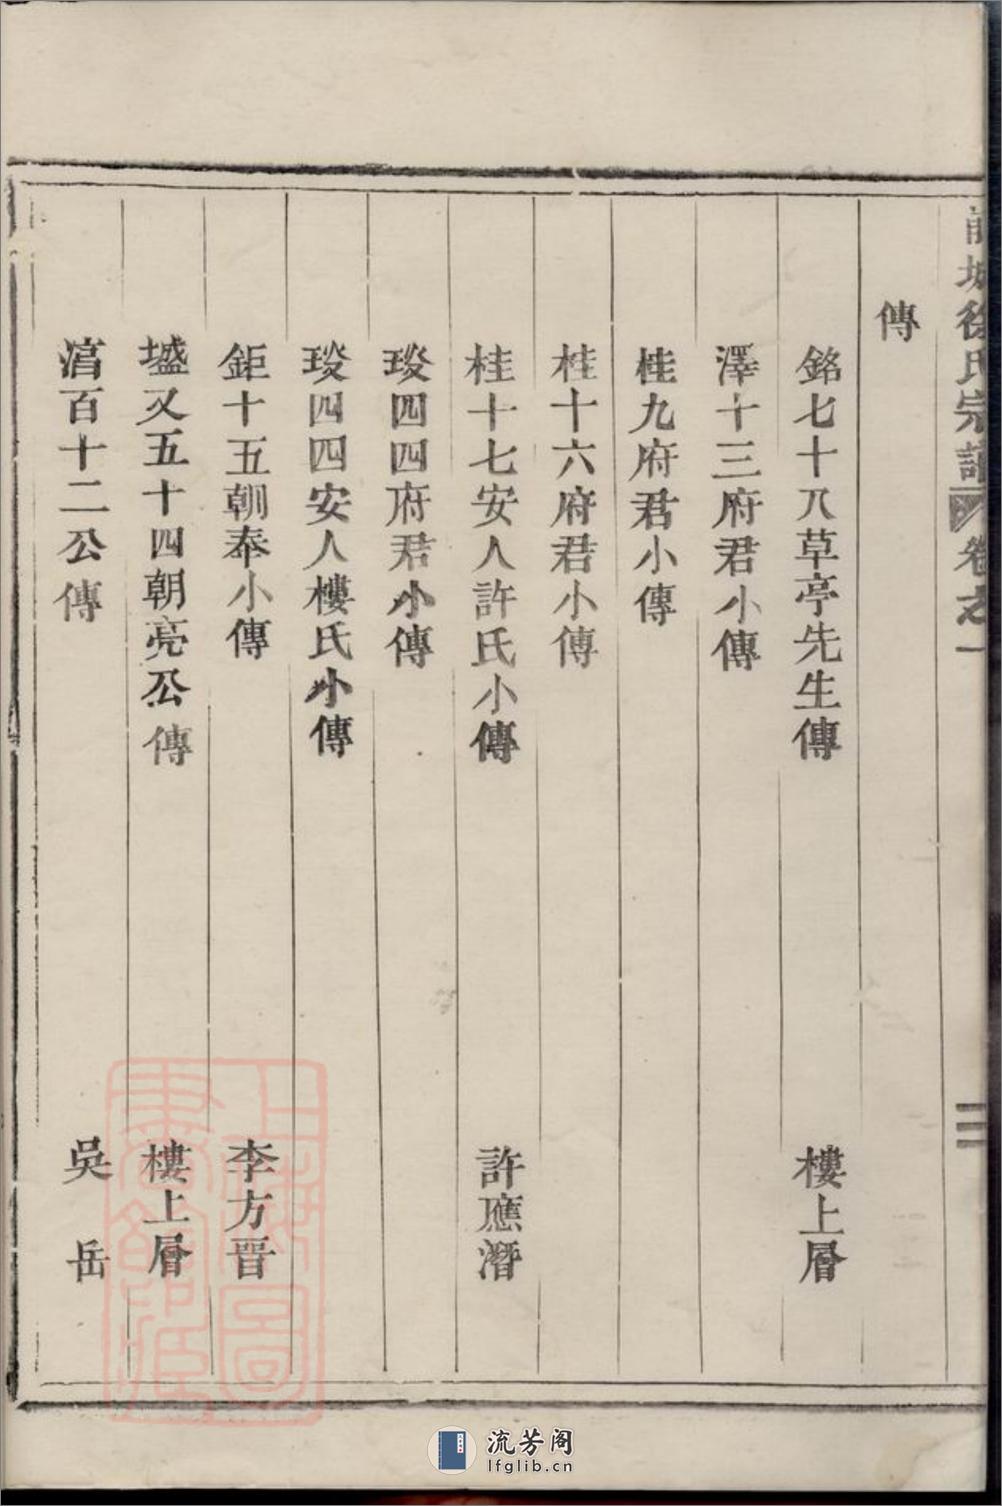 前城徐氏宗譜 卷之一
三
傳
銘七十八草亭先生傳 樓上層
澤十三府君小傳
桂九府君小傳
桂十六府君小傳
桂十七安人許氏小傳 許應潛
琰四四府君小傳
琰四四安人樓氏小傳
鉅十五朝奉小傳 李方晋
壒又五十四朝亮公傳 樓上層
濇百十二公傳 吳岳
上海圖書館藏
流芳阁
lfglib.cn